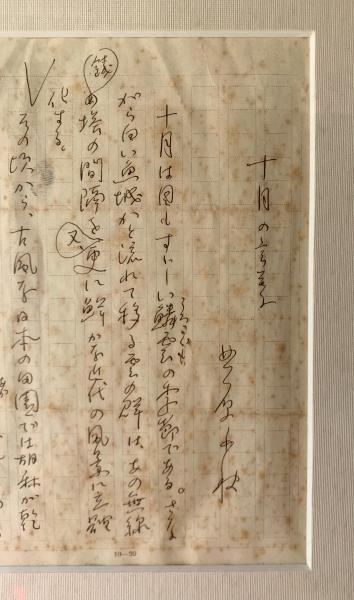 十月の
十月は目もすずしい鱗雲の季節である。さな
うろこぐも
がら白い魚城かと流れて移る雲の は、あの無線
塔の間隔を更に鮮かな近代の風景に立体
又
化する。
その頃から、古風な日本の田園では胡麻が乾
10—20